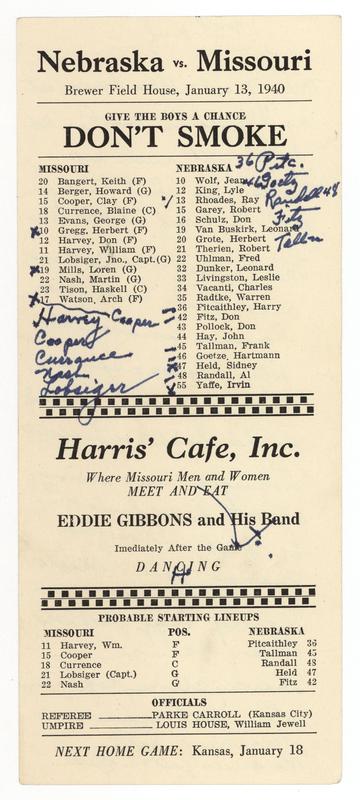 Nebraska vs. Missouri
Brewer Field House, January 13, 1940
GIVE THE BOYS A CHANCE
DON'T SMOKE
36 Pitc.
46 Goetz
Randall 48
Fitz
Tallm
MISSOURI
20 Bangert, Keith (F)
14 Berger, Howard (G)
15 Cooper, Clay (F)
18 Currence, Blaine (C)
13 Evans, George (G)
x 10 Gregg, Herbert (F)
12 Harvey, Don (F)
11 Harvey, William (F)
21 Lobsiger, Jno., Capt. (G)
x 19 Mills, Loren (G)
22 Nash, Martin (G)
23 Tison, Haskell (C)
x 17 Watson, Arch (F)
Harvey Cooper
Cooper
Currence
Nash
Lobsiger
NEBRASKA
10 Wolf, Jean
12 King, Lyle
13 Rhoades, Ray
15 Garey, Robert
16 Schulz, Don
19 Van Buskirk, Leonard
20 Grote, Herbert
21 Therien, Robert
22 Uhlman, Fred
32 Dunker, Leonard
33 Livingston, Leslie
34 Vacanti, Charles
35 Radtke, Warren
36 Fitcaithley, Harry
42 Fitz, Don
43 Pollock, Don
44 Hay, John
45 Tallman, Frank
46 Goetze, Hartmann
47 Held, Sidney
48 Randall, Al
x 55 Yaffe, Irvin
Harris' Cafe, Inc.
Where Missouri Men and Women
MEET AND EAT
EDDIE GIBBONS and His Band
Imediately After the Game
DANCING
PROBABLE STARTING LINEUPS
MISSOURI POS. NEBRASKA
11 Harvey, Wm. F Pitcaithley 36
15 Cooper F Tallman 45
18 Currence C Randall 48
21 Lobsiger (Capt.) G Held 47
22 Nash G Fitz 42
OFFICIALS
REFEREE PARKE CARROLL (Kansas City)
UMPIRE LOUIS HOUSE, William Jewell
NEXT HOME GAME: Kansas, January 18